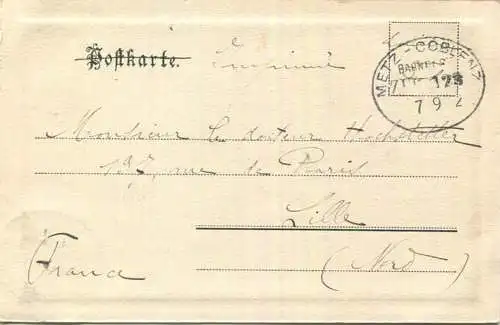 Postkarte. Imprimé
METZ - COBLENZ
BAHNPOST
ZUG 123
7 9 2
Monsieur le docteur Hochstetter
197, rue de Paris
Lille
(Nord)
France